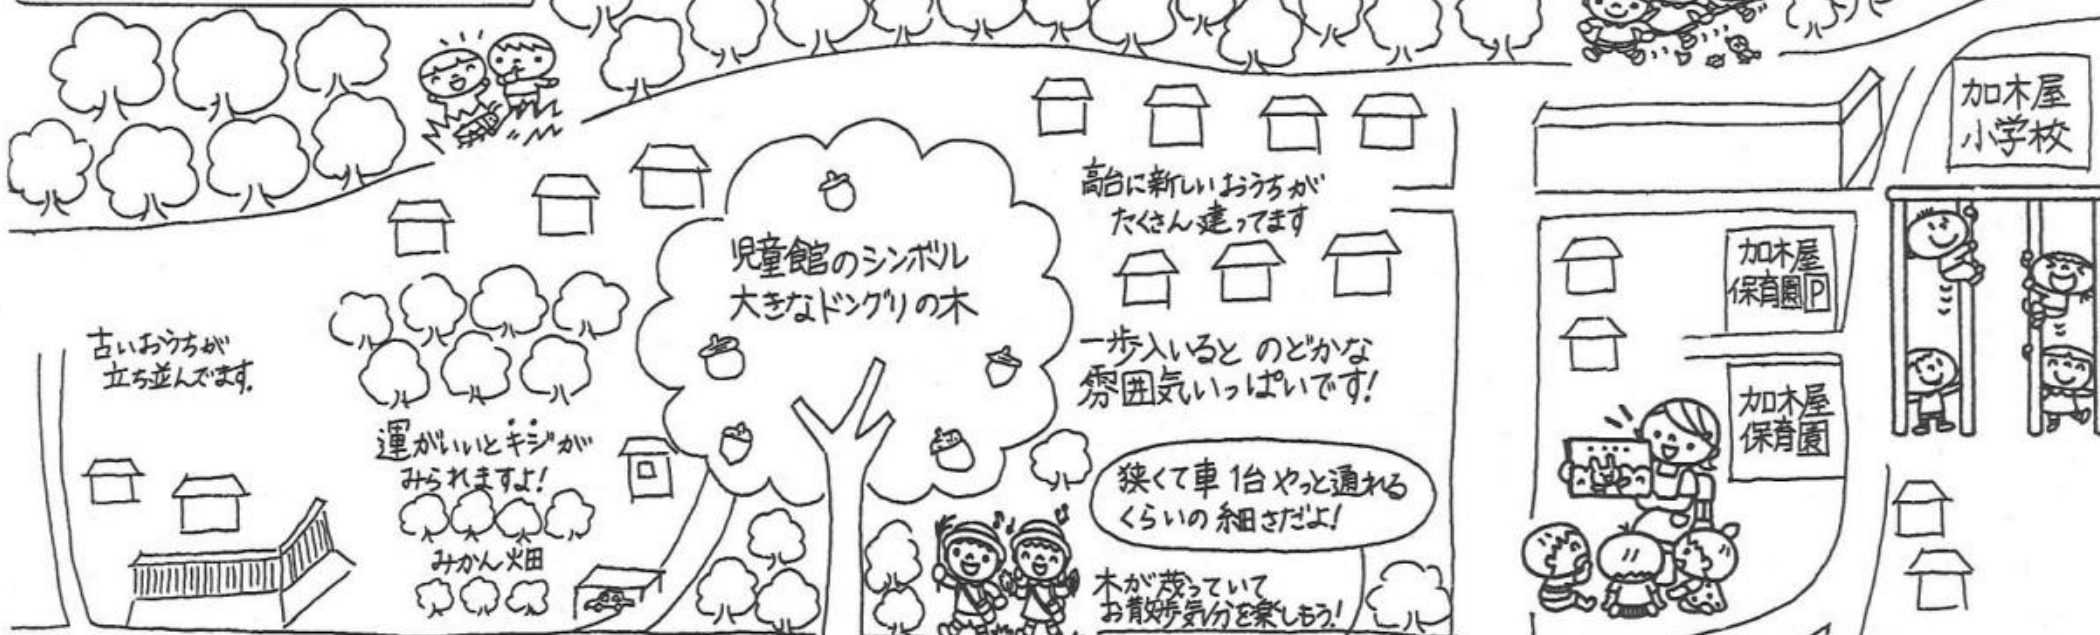 加木屋
小学校
高台に新しいおうちが
たくさん建ってます
児童館のシンボル
大きなドングリの木
加木屋
保育園P
古いおうちが
立ち並んでます。
一歩入いると のどかな
雰囲気いっぱいです!
加木屋
保育園
運がいいとキジが
みられますよ!
狭くて車1台やっと通れる
くらいの細さだよ!
みかん畑
木が茂っていて
お散歩気分を楽しもう!